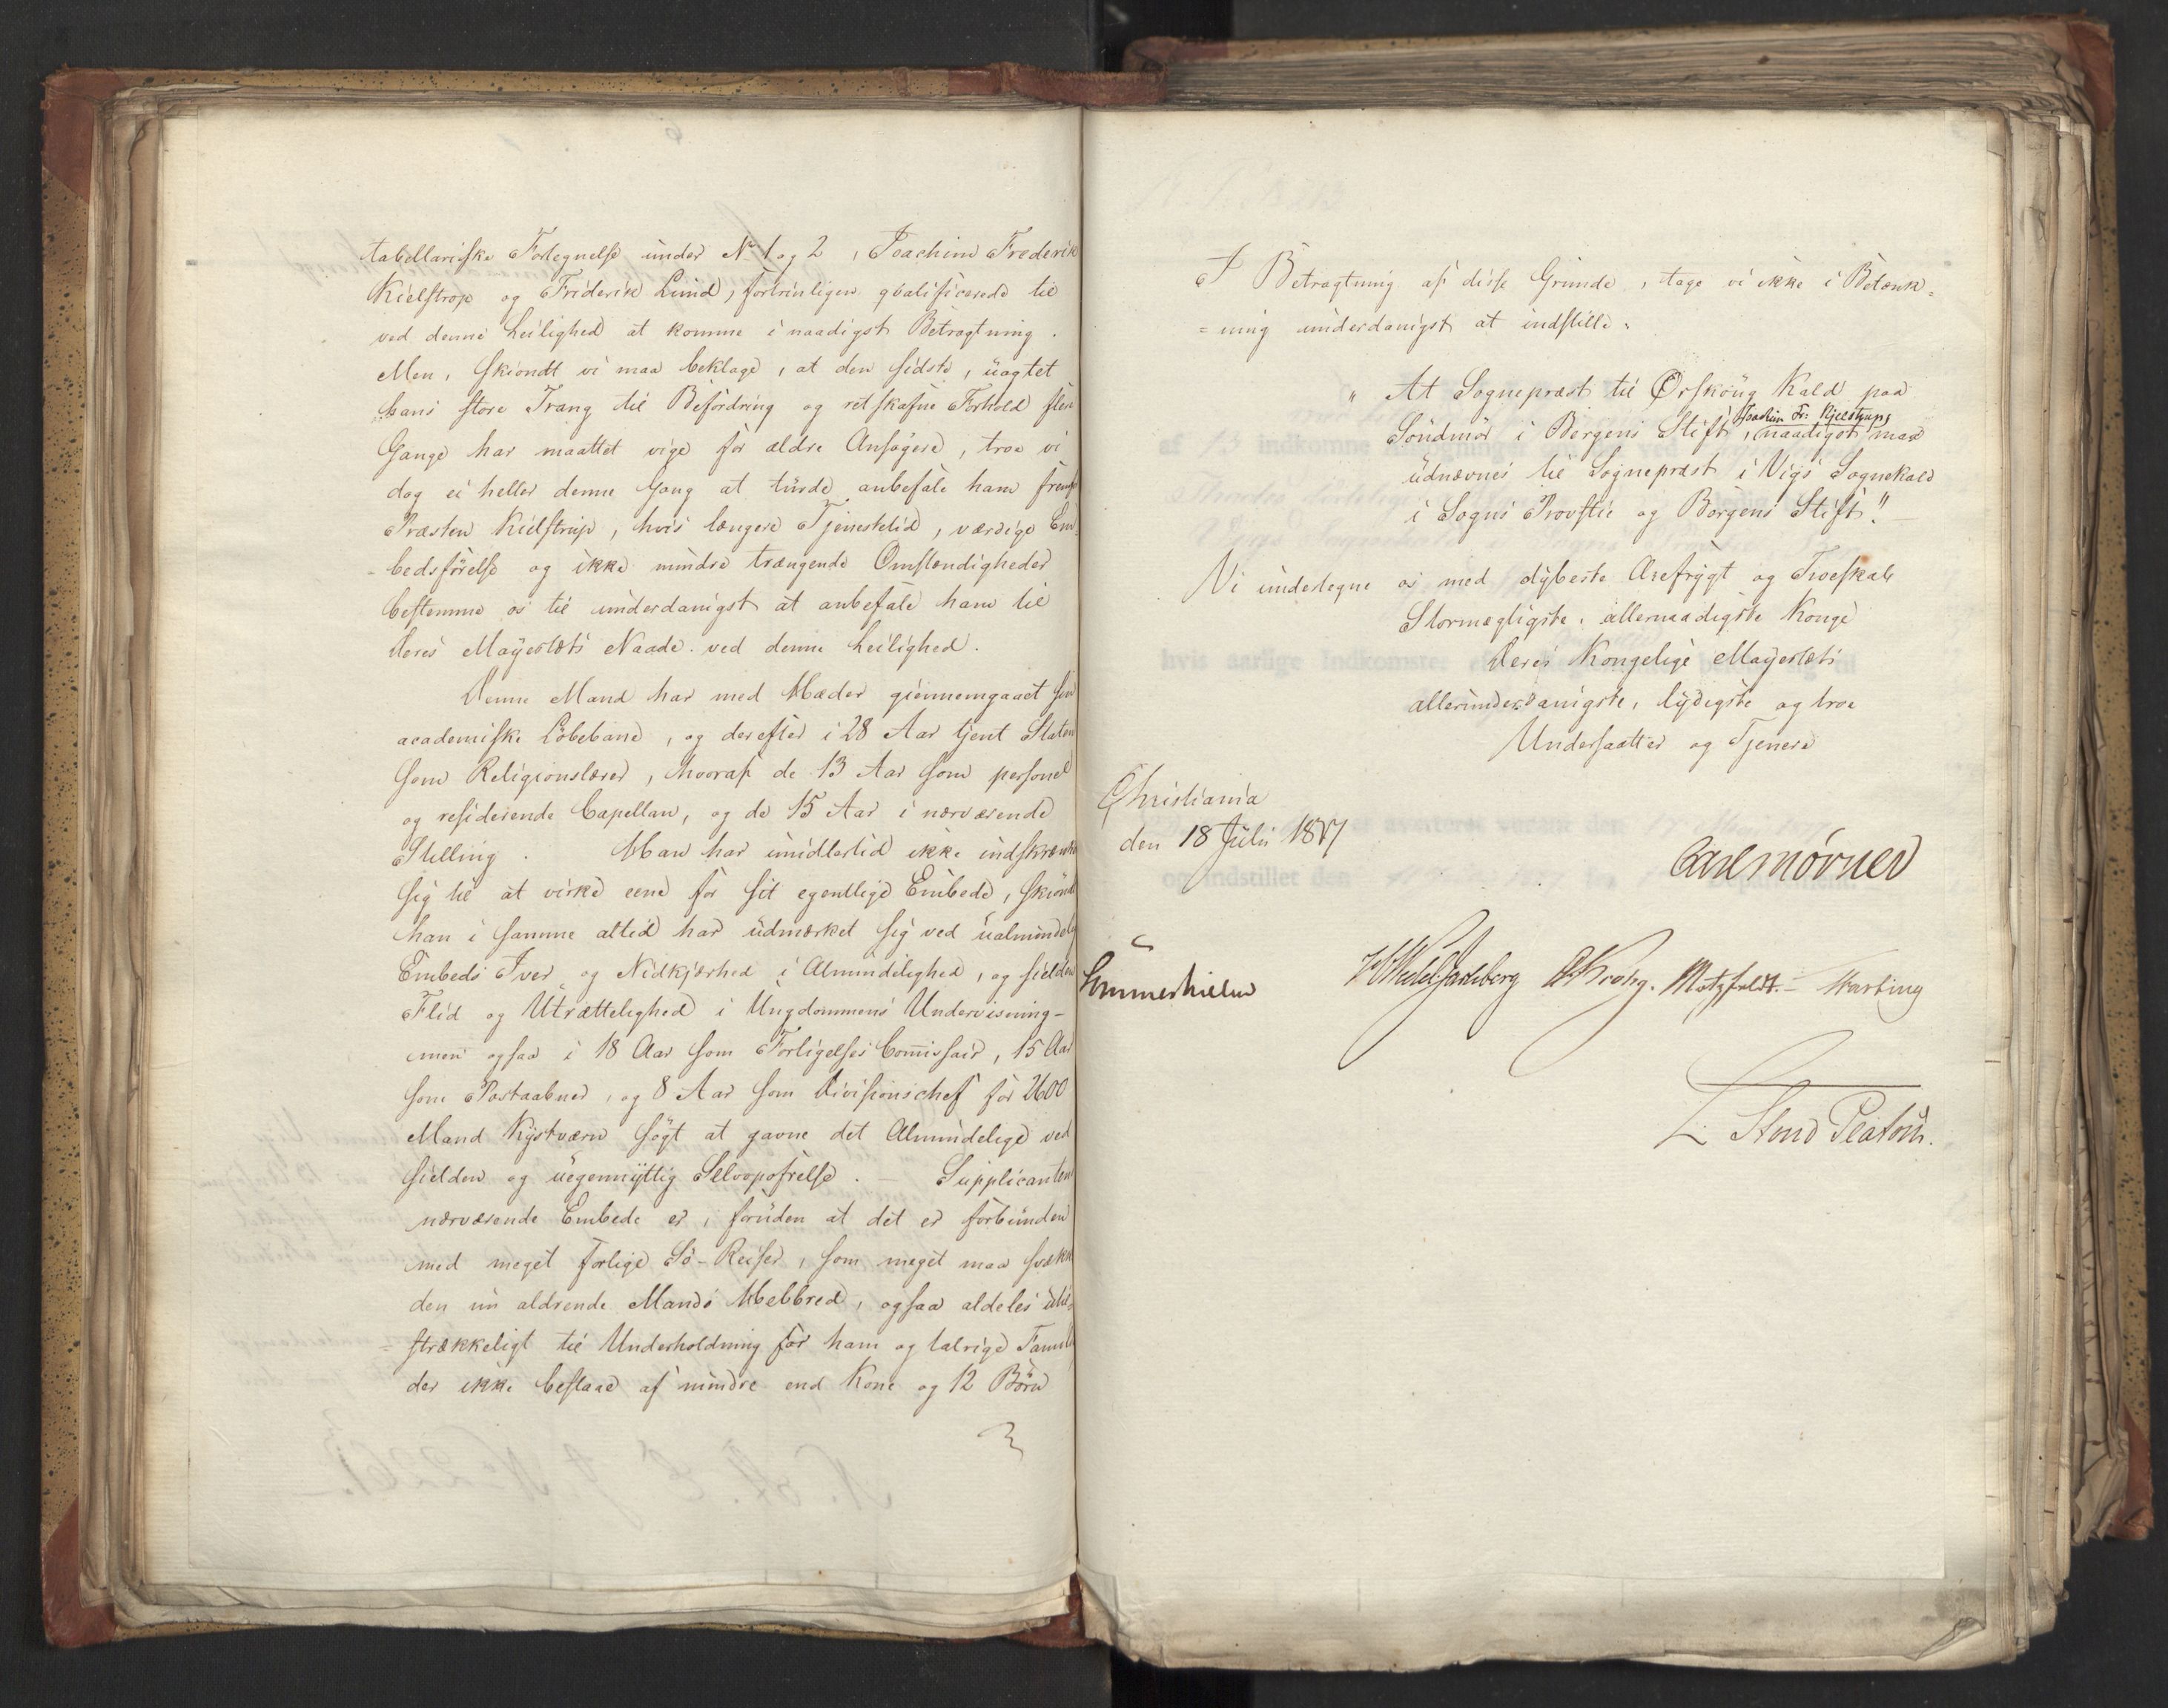 tabellariske Fortegnelse under No 1 og 2, Joachim Frederik
Kielstrop og Friderik Lund, fortrinligen qvalificerede til
ved denne Leilighed at komme i naadigst Betragtning.
Men, skiöndt vi maa beklage, at den sidste, uagtet
hans store Trang til Befordring og retskafne Forhold flere
Gange har maattet vige for ældre Ansögere, troe vi
dog ei heller denne Gang at turde anbefale ham fremfor
Præsten Kielstrup, hvis længere Tjenestetid, værdige Em-
-bedsförelse og ikke mindre trængende Omstændigheder
bestemme os til underdanigst at anbefale ham til
Deres Mayestæts Naade ved denne Leilighed.
Denne Mand har med Hæder giennemgaaet sin
academiske Löbebane, og derefter i 28 Aar tjent Staten
som Religionslærer, hvoraf de 13 Aar som personel
og residerende Capellan, og de 15 Aar i nærværende
Stilling. Han har imidlertid ikke indskrænket
sig til at virke ene for sit egentlige Embede, skiöndt
han i samme altid har udmærket sig ved ualmindelig
Embeds Iver og Nidkjærhed i Almindelighed, og sielden
Flid og Utrættelighed i Ungdommens Undervisning-
men ogsaa i 18 Aar som Forligelses Commissair, 15 Aar
som Postaabner, og 8 Aar som Divisionschef for 2600
Mand Kystværn sögt at gavne det Almindelige ved
sielden og uegennyttig Selvopofrelse. - Supplicanten
nærværende Embede er, foruden at det er forbunden
med meget farlige Sö-Reiser, som meget maa svække
den nu aldrende Mands Helbred, ogsaa aldeles util-
-strækkeligt til Underholdning for ham og talrige Famili
der ikke bestaaer af mindre end Kone og 12 Börn
I Betragtning af disse Grunde, tage vi ikke i Betænk-
=ning underdanigst at indstille:
"At Sognepræst til Örskoug Kald paa
Söndmör i Bergens Stift, Joachim Fr: Kjelstrup, naadigst maa
udnævnes til Sognepræst i Vigs Sognekald
i Sogns Provstie og Bergens Stift."
Vi undertegne os med dybeste Ærefrygt og Troeskab
Stormægtigste, allernaadigste Konge
Deres Kongelige Mayestæts
allerunderdanigste, lydigste og troe
Undersaatter og Tjenere
Christiania
den 18 Julii 1817
Carl Mörner
Sommerhielm
Wedel Jarlsberg Krohg. Motzfeldt. -
L. Stoud Platou.